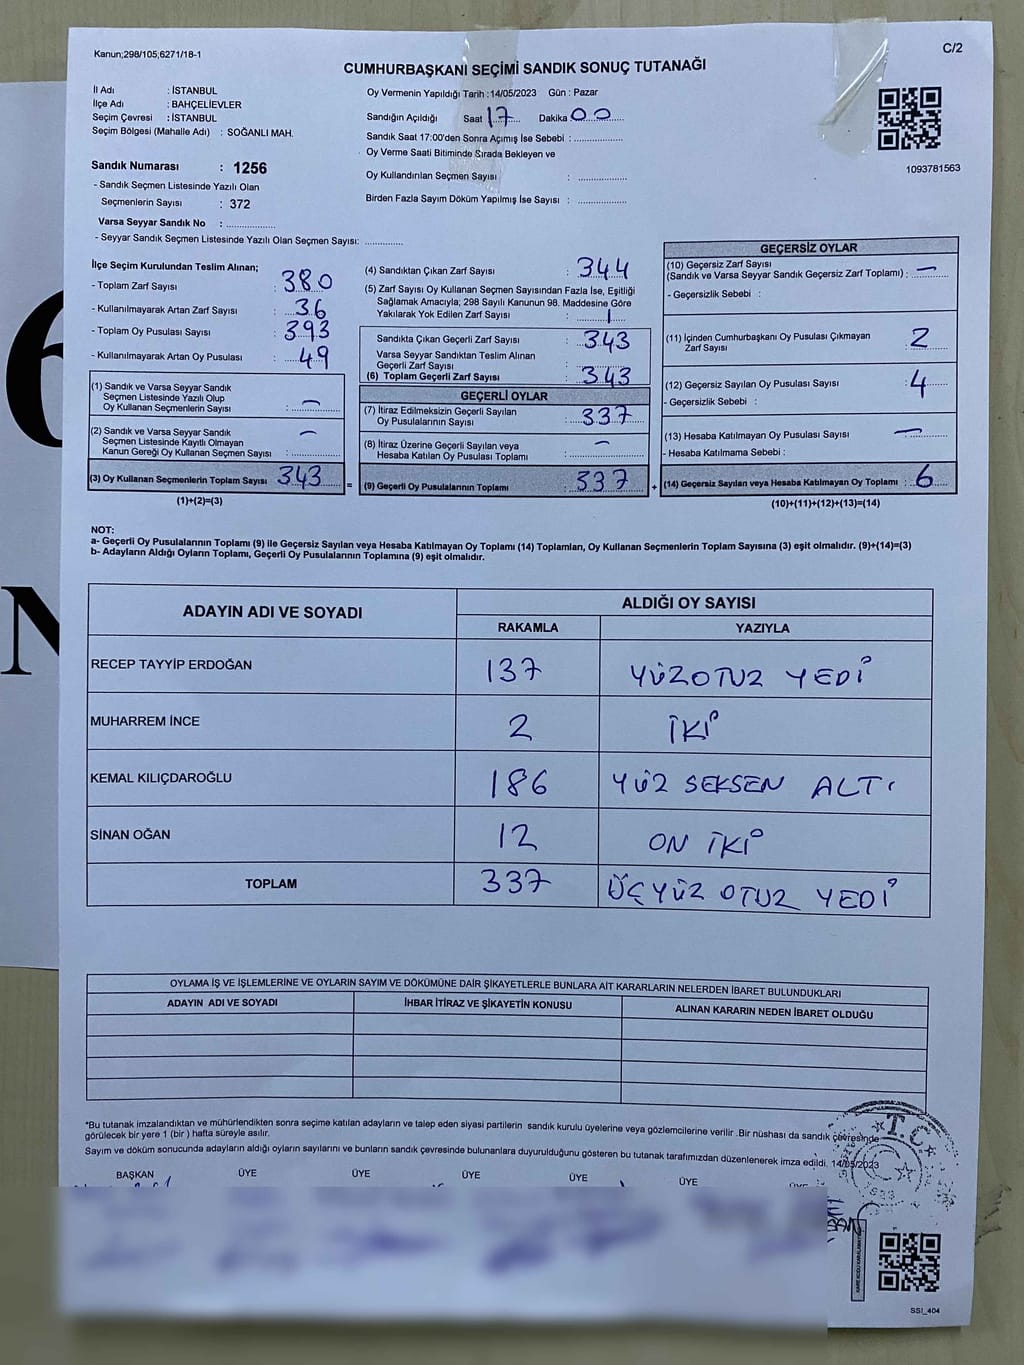 Kanun;298/105;6271/18-1
C/2
CUMHURBAŞKANI SEÇİMİ SANDIK SONUÇ TUTANAĞI
İl Adı : İSTANBUL
İlçe Adı : BAHÇELİEVLER
Seçim Çevresi : İSTANBUL
Seçim Bölgesi (Mahalle Adı) : SOĞANLI MAH.
Sandık Numarası : 1256
- Sandık Seçmen Listesinde Yazılı Olan
Seçmenlerin Sayısı : 372
Varsa Seyyar Sandık No : ..................
- Seyyar Sandık Seçmen Listesinde Yazılı Olan Seçmen Sayısı: ..............
Oy Vermenin Yapıldığı Tarih :14/05/2023 Gün : Pazar
Sandığın Açıldığı Saat 17 Dakika 00
Sandık Saat 17:00'den Sonra Açımış İse Sebebi : ..................
Oy Verme Saati Bitiminde Sırada Bekleyen ve
Oy Kullandırılan Seçmen Sayısı : ..................
Birden Fazla Sayım Döküm Yapılmış İse Sayısı : ..................
1093781563
İlçe Seçim Kurulundan Teslim Alınan;
- Toplam Zarf Sayısı : 380
- Kullanılmayarak Artan Zarf Sayısı : 36
- Toplam Oy Pusulası Sayısı : 393
- Kullanılmayarak Artan Oy Pusulası : 49
(1) Sandık ve Varsa Seyyar Sandık
Seçmen Listesinde Yazılı Olup
Oy Kullanan Seçmenlerin Sayısı : —
(2) Sandık ve Varsa Seyyar Sandık
Seçmen Listesinde Kayıtlı Olmayan
Kanun Gereği Oy Kullanan Seçmen Sayısı : —
(3) Oy Kullanan Seçmenlerin Toplam Sayısı 343
(1)+(2)=(3)
=
(4) Sandıktan Çıkan Zarf Sayısı : 344
(5) Zarf Sayısı Oy Kullanan Seçmen Sayısından Fazla İse, Eşitliği
Sağlamak Amacıyla; 298 Sayılı Kanunun 98. Maddesine Göre
Yakılarak Yok Edilen Zarf Sayısı : 1
Sandıkta Çıkan Geçerli Zarf Sayısı : 343
Varsa Seyyar Sandıktan Teslim Alınan
Geçerli Zarf Sayısı : ..................
(6) Toplam Geçerli Zarf Sayısı : 343
GEÇERLİ OYLAR
(7) İtiraz Edilmeksizin Geçerli Sayılan
Oy Pusulalarının Sayısı : 337
(8) İtiraz Üzerine Geçerli Sayılan veya
Hesaba Katılan Oy Pusulası Toplamı : —
(9) Geçerli Oy Pusulalarının Toplamı : 337
+
GEÇERSİZ OYLAR
(10) Geçersiz Zarf Sayısı
(Sandık ve Varsa Seyyar Sandık Geçersiz Zarf Toplamı) : —
- Geçersizlik Sebebi :
(11) İçinden Cumhurbaşkanı Oy Pusulası Çıkmayan
Zarf Sayısı : 2
(12) Geçersiz Sayılan Oy Pusulası Sayısı : 4
- Geçersizlik Sebebi :
(13) Hesaba Katılmayan Oy Pusulası Sayısı —
- Hesaba Katılmama Sebebi :
(14) Geçersiz Sayılan veya Hesaba Katılmayan Oy Toplamı : 6
(10)+(11)+(12)+(13)=(14)
NOT:
a- Geçerli Oy Pusulalarının Toplamı (9) ile Geçersiz Sayılan veya Hesaba Katılmayan Oy Toplamı (14) Toplamları, Oy Kullanan Seçmenlerin Toplam Sayısına (3) eşit olmalıdır. (9)+(14)=(3)
b- Adayların Aldığı Oyların Toplamı, Geçerli Oy Pusulalarının Toplamına (9) eşit olmalıdır.
ADAYIN ADI VE SOYADI ALDIĞI OY SAYISI
RAKAMLA YAZIYLA
RECEP TAYYİP ERDOĞAN 137 YÜZOTUZ YEDİ
MUHARREM İNCE 2 İKİ
KEMAL KILIÇDAROĞLU 186 YÜZ SEKSEN ALTI
SİNAN OĞAN 12 ON İKİ
TOPLAM 337 ÜÇYÜZ OTUZ YEDİ
OYLAMA İŞ VE İŞLEMLERİNE VE OYLARIN SAYIM VE DÖKÜMÜNE DAİR ŞİKAYETLERLE BUNLARA AİT KARARLARIN NELERDEN İBARET BULUNDUKLARI
ADAYIN ADI VE SOYADI İHBAR İTİRAZ VE ŞİKAYETİN KONUSU ALINAN KARARIN NEDEN İBARET OLDUĞU
*Bu tutanak imzalandıktan ve mühürlendikten sonra seçime katılan adayların ve talep eden siyasi partilerin sandık kurulu üyelerine veya gözlemcilerine verilir .Bir nüshası da sandık çevresinde
görülecek bir yere 1 (bir ) hafta süreyle asılır.
Sayım ve döküm sonucunda adayların aldığı oyların sayılarını ve bunların sandık çevresinde bulunanlara duyurulduğunu gösteren bu tutanak tarafımızdan düzenlenerek imza edildi. 14/05/2023
BAŞKAN ÜYE ÜYE ÜYE ÜYE ÜYE ÜYE
T.C.
SSI_404